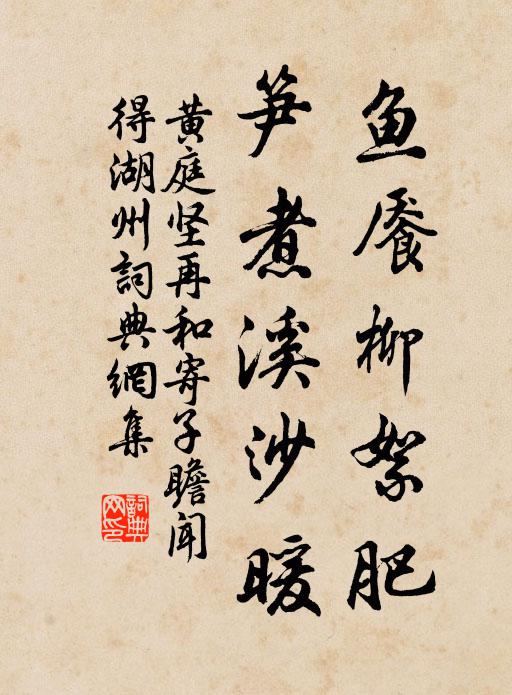 鱼餍柳絮肥
笋煮溪沙暖
黄庭坚再和寄子瞻闻
得湖州詞典網集
詞典
网印